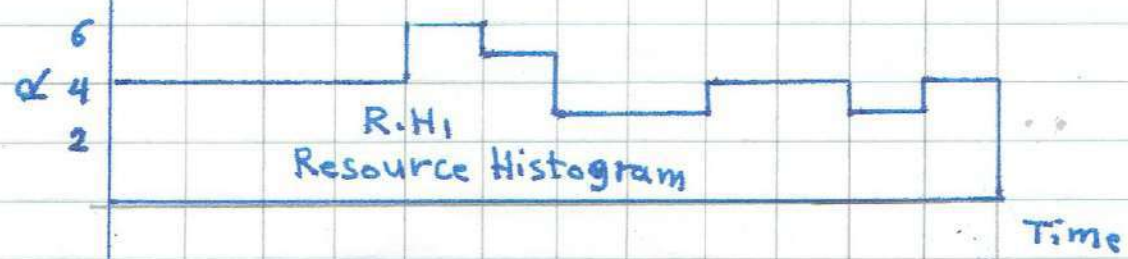 6
α 4
2
R.H1
Resource Histogram
Time